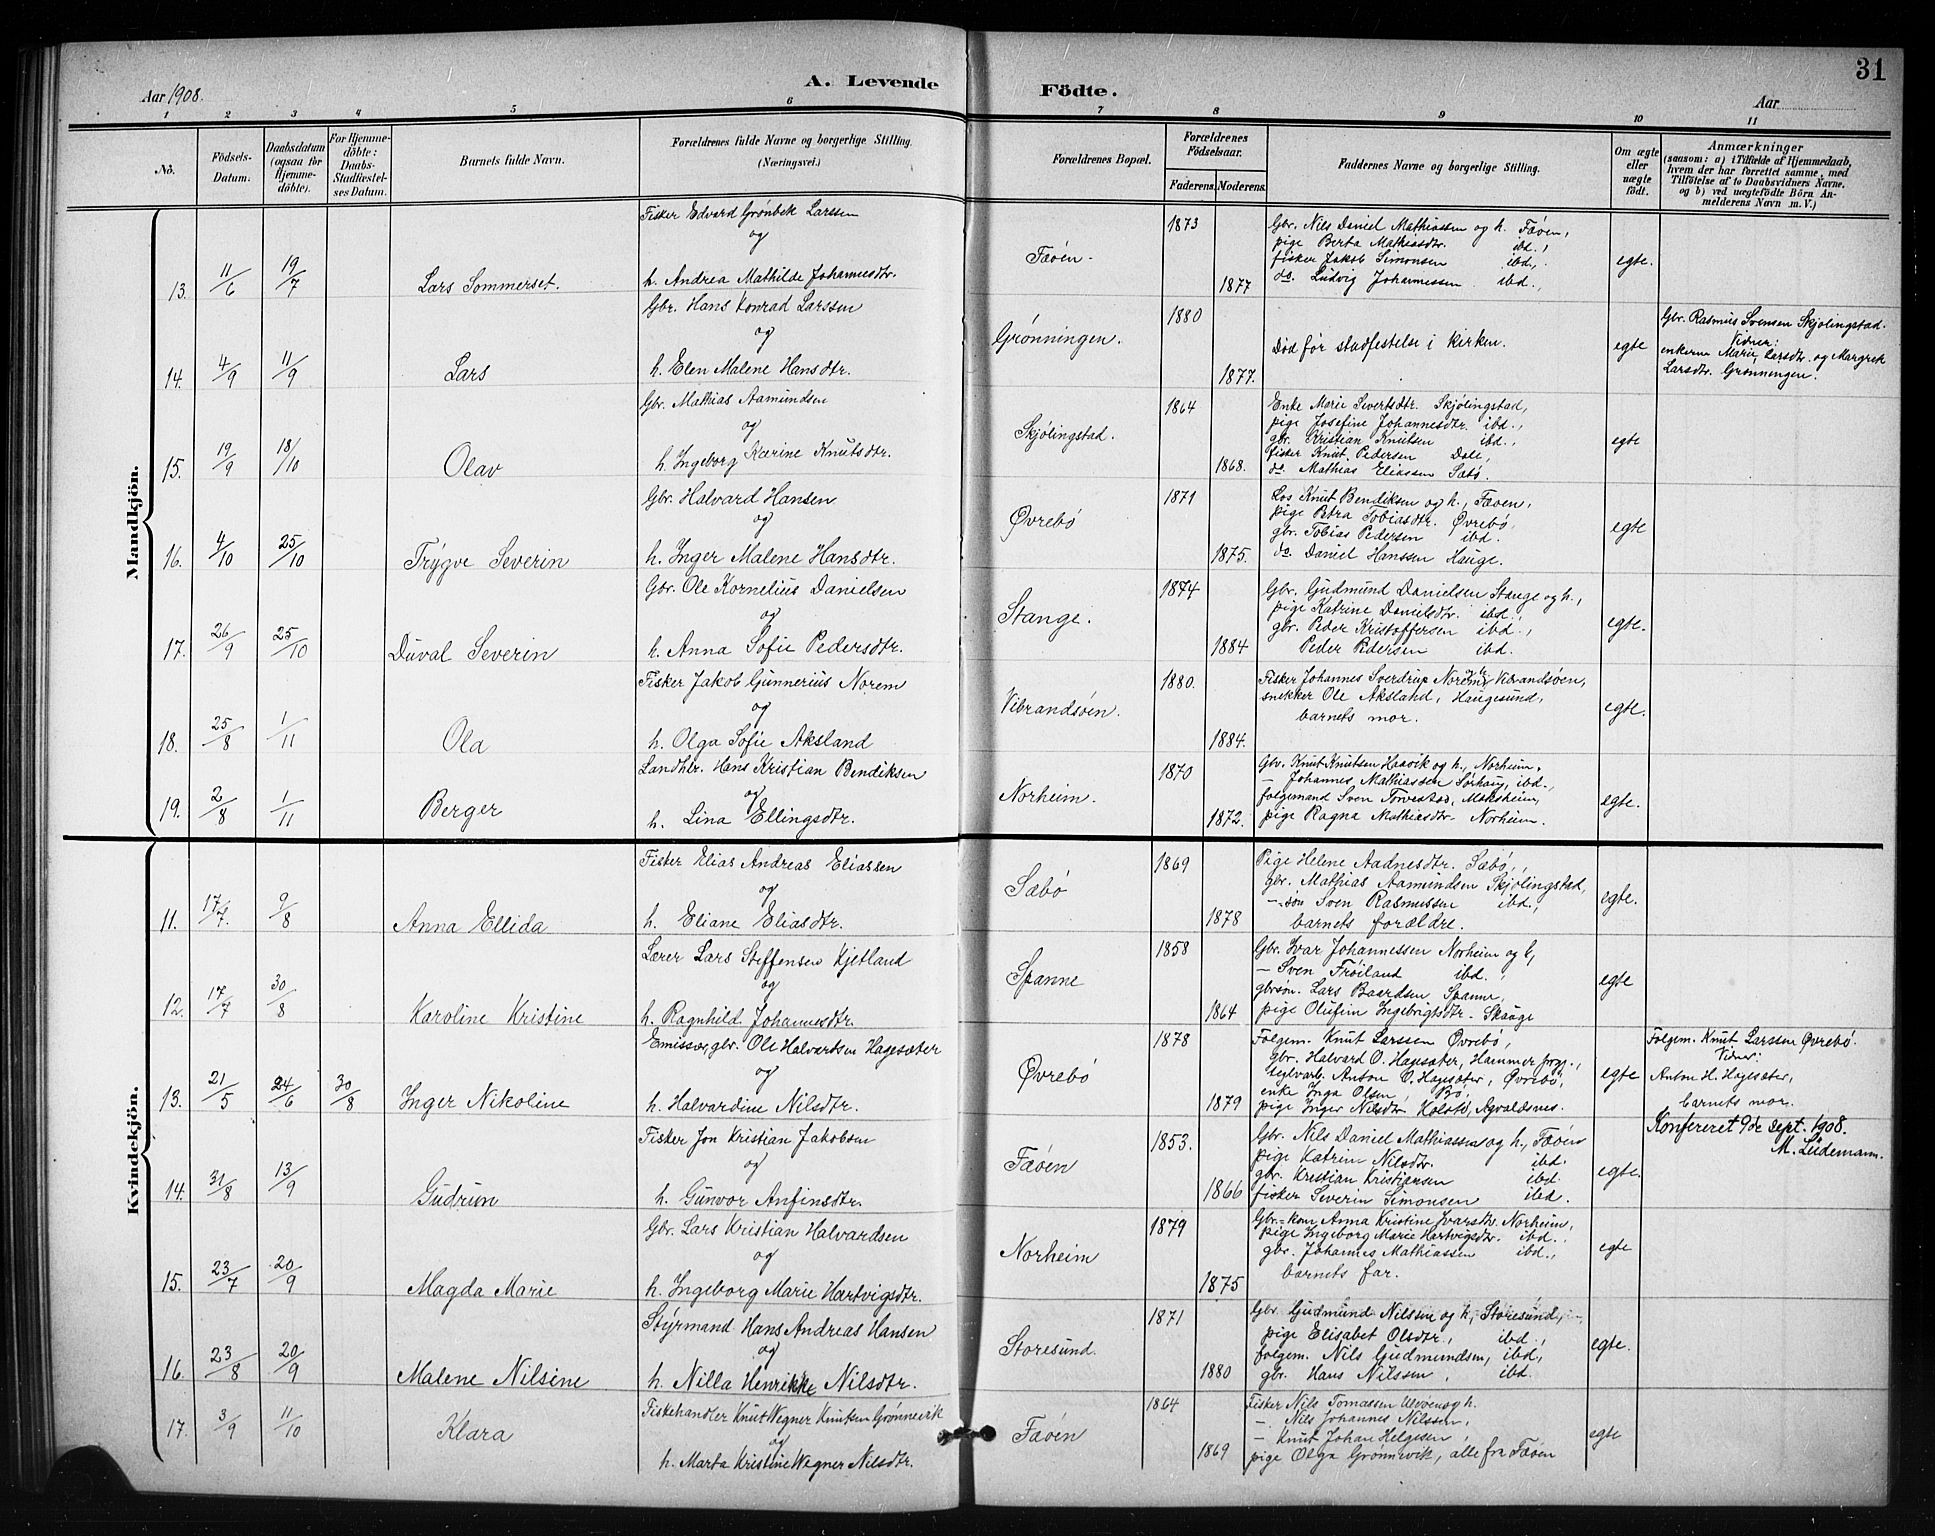 31
Aar 1908.
A. Levende Födte.
Aar
1 2 3 4 5 6 7 8 9 10 11
No.
Födsels-Datum.
Daabsdatum (ogsaa for Hjemmedöbte).
For Hjemmedöbte: Daabs-Stadfæstelses Datum.
Barnets fulde Navn.
Forældrenes fulde Navne og borgerlige Stilling. (Næringsvei.)
Forældrenes Bopæl.
Forældrenes Födselsaar.
Faderens. Moderens.
Faddernes Navne og borgerlige Stilling.
Om ægte eller uægte födt.
Anmærkninger
(saasom: a) i Tilfælde af Hjemmedaab, hvem der har forrettet samme, med Tilföielse af to Daabsvidners Navne, og b) ved uægtefödte Börn Anmelderens Navn m. V.)
Mandkjön.
13. 11/6 19/7 Lars Sommerset.
Fisker Edvard Grönbek Larssen
og
h. Andrea Mathilde Johannesdtr.
Føöen. 1873 1877
Gbr. Nils Daniel Mathiassen og h. Føöen,
pige Berta Mathiasdtr. ibd.,
fisker Jakob Simonsen ibd.,
do. Ludvig Johannessen ibd.,
egte.
14. 4/9 11/9 Lars
Gbr. Hans Konrad Larssen
og
h. Elen Malene Hansdtr.
Grønningen. 1880 1877.
Död før stadfestelse i kirken.
egte
Gbr. Rasmus Svensen Skjölingstad.
Vidner:
enkerne Marie Larsdtr. og Margrek
Larsdtr. Grønningen.
15. 19/9 18/10 Olav
Gbr. Mathias Aamundsen
og
h. Ingeborg Karine Knutsdtr.
Skjölingstad. 1864 1868.
Enke Marie Sivertsdtr. Skjölingstad,
pige Josefine Johannesdtr. ibd.,
gbr. Kristian Knutsen ibd.,
fisker Knut Pedersen Dale,
do. Mathias Eliassen Sæbö.
egte
16. 4/10 25/10 Trygve Severin
Gbr. Halvard Hansen
og
h. Inger Malene Hansdtr.
Øvrebö 1871 1875.
Los Knut Bendiksen og h., Føöen,
pige Petra Tobiasdtr. Øvrebö,
gbr. Tobias Pedersen ibd.
do. Daniel Hanssen Hauge.
egte
17. 26/9 25/10 Duval Severin
Gbr. Ole Kornelius Danielsen
og
h. Anna Sofie Pedersdtr.
Stange. 1874 1884
Gbr. Gudmund Danielsen Stange og h.,
pige Katrine Danielsdtr. ibd.,
gbr. Peder Kristoffersen ibd.,
Peder Pedersen ibd.
egte.
18. 25/8 1/11 Ola
Fisker Jakob Gunnerius Norem
og
h. Olga Sofie Aksland
Vibrandsöen. 1880. 1884.
Fisker Johannes Sverdrup Norem Vibrandsöen,
snekker Ole Aksland, Haugesund,
barnets mor.
egte.
19. 2/8 1/11 Berger
Landhlr. Hans Kristian Bendiksen
og
h. Lina Ellingsdtr.
Norheim. 1870 1872.
Gbr. Knut Knutsen Haavik og h., Norheim,
— Johannes Mathiassen Sörhaug, ibd.,
folgemand Sven Torvestad, Moksheim,
pige Ragna Mathiasdtr. Norheim.
egte.
Kvindekjön.
11. 17/7. 9/8 Anna Ellida
Fisker Elias Andreas Eliassen
og
h. Eliane Eliasdtr.
Sæbö 1869 1878
Pige Helene Aadnesdtr. Sæbö,
gbr. Mathias Aamundsen Skjölingstad,
— sön Sven Rasmussen ibd.,
barnets forældre.
egte.
12. 17/7 30/8 Karoline Kristine
Lærer Lars Steffensen Kjetland
og
h. Ragnhild Johannesdtr.
Spanne 1858 1864
Gbr. Ivar Johannessen Norheim og h,
— Sven Fröiland ibd.,
gbrsön. Lars Baardsen Spanne,
pige Olufin Ingebrigtsdtr. Skauge
egte
13. 21/5 24/6 30/8 Inger Nikoline
Emissær, gbr. Ole Halvardsen Hagesæter
og
h. Halvardine Nilsdtr.
Øvrebö 1878 1879
Folgem. Knut Larssen Øvrebö,
gbr. Halvard O. Hagesæter, Hammer prgj.,
teglvarb. Anton O. Hagesæter, Øvrebö,
enke Inga Olsen Bö,
pige Inger Nilsdtr Kolstö, Avaldsnes.
egte
Folgem. Knut Larssen Øvrebö.
Vidner:
Anton H. Hagesæter,
barnets mor.
Konfereret 9de Sept. 1908.
M. Lüdemann.
14. 31/8 13/9 Gudrun
Fisker Jon Kristian Jakobsen
og
h. Gunvor Anfinsdtr.
Føöen 1853. 1866
Gbr. Nils Daniel Mathiassen og h., Føöen
pige Katrin Nilsdtr. ibd.
gbr. Kristian Kristiansen ibd.
fisker Severin Simonsen ibd.
egte.
15. 23/7 20/9 Magda Marie
Gbr. Lars Kristian Halvardsen
og
h. Ingeborg Marie Hartvigsdtr.
Norheim 1879 1875
Gbr.-kone Anna Kristine Ivarsdtr. Norheim,
pige Ingeborg Marie Hartvigsdtr. ibd.
gbr. Johannes Mathiassen ibd.,
barnets far.
egte
16. 23/8 20/9 Malene Nilsine
Styrmand Hans Andreas Hansen
og
h. Nilla Henrikke Nilsdtr.
Storesund. 1871 1880
Gbr. Gudmund Nilssen og h, Storesund,
pige Elisabet Olsdtr., ibd.,
folgem. Nils Gudmundsen, ibd,
gbr. Hans Nilssen, ibd.
egte.
17. 3/9 11/10 Klara
Fiskehandler Knut Wegner Knutsen Grönnevik
og
h. Marta Kristine Wegner Nilsdtr.
Føöen 1864 1869
Fisker Nils Tomassen Ulvöen og h.
— Nils Johannes Nilssen,
— Knut Johan Helgesen,
pige Olga Grönnevik, alle fra Føöen
egte